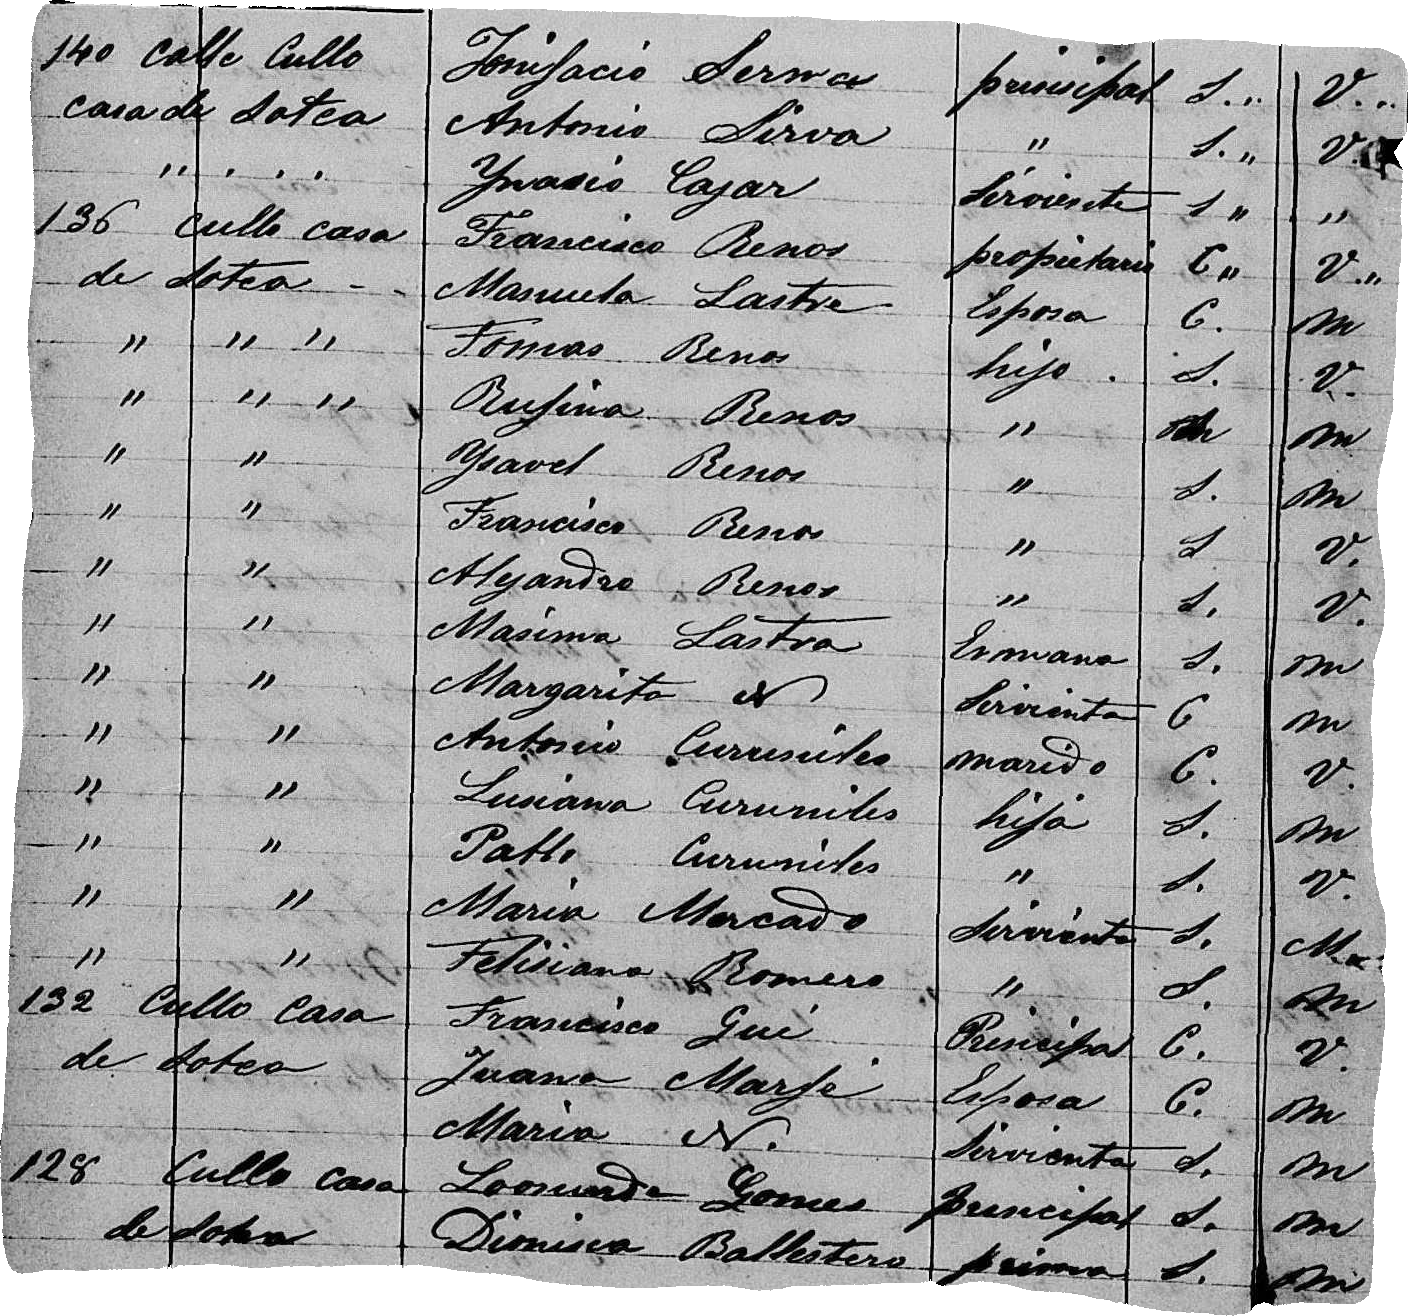 140 Calle Cullo Bonifacio Serma principal S. „ V. „
casa de Sotea Antonio Sirva " S. „ V.
" . . . Ynasio Cajar Sirviente S " "
136 Cullo casa Francisco Renos propietario C „ V. „
de Sotea - - Manuela Lastra Esposa C. m
" " " Tomas Renos hijo . S. V.
" " " Rufina Renos " m
" " Ysavel Renos " S. m
" " Francisco Renos " S V.
" " Alejandro Renos " S. V.
" " Masima Lastra Ermana S. m
" " Margarita N Sirvienta C m
" " Antonio Curuniles marido C. V.
" " Lusiana Curuniles hija S. m
" " Pablo Curuniles " S. V.
" " Maria Mercado Sirvienta S. M
" " Felisiana Romero " S. m
132 Cullo Casa Francisco Gué Principal C. V.
de Sotea Juana Marfé Esposa C. m
Maria N. Sirvienta S. m
128 Cullo casa Leonarda Gomes principal S. m
de Sotea Dionisia Ballestero prima S. m